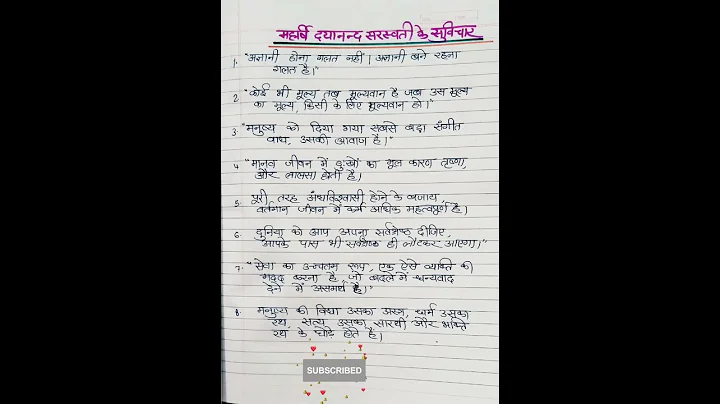 महर्षि दयानन्द सरस्वती के सुविचार
1. "अज्ञानी होना गलत नहीं। अज्ञानी बने रहना
गलत है।"
2. "कोई भी मूल्य तब मूल्यवान है जब उस मूल्य
का मूल्य, किसी के लिए मूल्यवान हो।"
3. "मनुष्य को दिया गया सबसे बड़ा संगीत
वाध, उसकी आवाज है।"
4. "मानव जीवन में दुःखों का मूल कारण तृष्णा,
और लालसा होती है।
5. पूरी तरह अंधविश्वासी होने के बजाय,
वर्तमान जीवन में कर्म अधिक महत्वपूर्ण है।
6. दुनिया को आप अपना सर्वश्रेष्ठ दीजिए,
आपके पास भी सर्वश्रेष्ठ ही लौटकर आएगा।"
7. "सेवा का उच्चतम रूप, एक ऐसे व्यक्ति की
मदद करना है, जो बदले में धन्यवाद
देने में असमर्थ है।"
8. मनुष्य की विद्या उसका अस्त्र, धर्म उसका
रथ, सत्य उसका सारथी और भक्ति
रथ के घोड़े होते है।
SUBSCRIBED